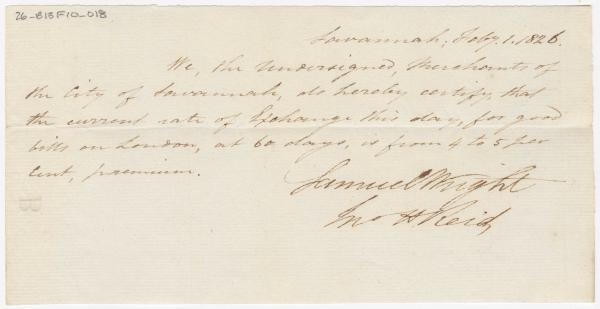 26-B13F10-018
Savannah, Feby. 1. 1826.
We, the Undersigned, Merchants of
the City of Savannah, do hereby certify, that
the current rate of Exchange this day, for good
bills on London, at 60 days, is from 4 to 5 per
Cent, premium.
Samuel Wright
Jno H Reid
B